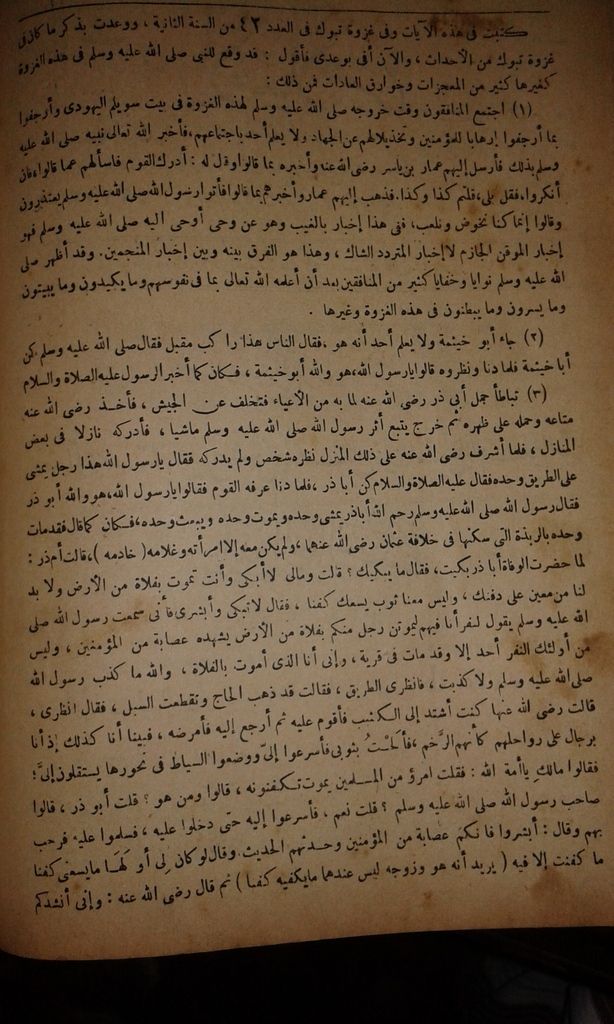 كتبت فى هذه الآيات وفى غزوة تبوك فى العدد ٤٣ من السنة الثانية ، ووعدت بذكر ما كان فى
غزوة تبوك من الأحداث ، والآن أفى بوعدى فأقول : قد وقع للنبى صلى الله عليه وسلم فى هذه الغزوة
كغيرها كثير من المعجزات وخوارق العادات فمن ذلك :
(١) اجتمع المنافقون وقت خروجه صلى الله عليه وسلم لهذه الغزوة فى بيت سويلم اليهودى وأرجفوا
بما أرجفوا إرهابا للمؤمنين وتخذيلا لهم عن الجهاد ولا يعلم أحد باجتماعهم، فأخبر الله تعالى نبيه صلى الله عليه
وسلم بذلك فأرسل إليهم عمار بن ياسر رضى الله عنه وأخبره بما قالوا وقال له : أدرك القوم فاسألهم عما قالوا، فان
أنكروا، فقل بلى، قلتم كذا وكذا. فذهب إليهم عمار وأخبرهم بما قالوا فأتوا رسول الله صلى الله عليه وسلم يعتذرون
وقالوا إنما كنا نخوض ونلعب، ففى هذا إخبار بالغيب وهو عن وحى أوحى اليه صلى الله عليه وسلم فهو
إخبار الموقن الجازم لا إخبار المتردد الشاك ، وهذا هو الفرق بينه وبين إخبار المنجمين. وقد أظهر صلى
الله عليه وسلم نوايا وخفايا كثير من المنافقين بعد أن أعلمه الله تعالى بما فى نفوسهم وما يكيدون وما يبيتون
وما يسرون وما يبطنون فى هذه الغزوة وغيرها .
(٢) جاء أبو خيثمة ولا يعلم أحد أنه هو ، فقال الناس هذا راكب مقبل فقال صلى الله عليه وسلم كن
أبا خيثمة فلما دنا ونظروه قالوا يا رسول الله، هو والله أبو خيثمة ، فكان كما أخبر الرسول عليه الصلاة والسلام
(٣) تباطأ جمل أبى ذر رضى الله عنه لما به من الأعياء فتخلف عن الجيش ، فأخذ رضى الله عنه
متاعه وحمله على ظهره ثم خرج يتبع أثر رسول الله صلى الله عليه وسلم ماشيا ، فأدركه نازلا فى بعض
المنازل ، فلما أشرف رضى الله عنه على ذلك المنزل نظره شخص ولم يدركه فقال يا رسول الله هذا رجل يمشى
على الطريق وحده فقال عليه الصلاة والسلام كن أبا ذر ، فلما دنا عرفه القوم فقالوا يا رسول الله، هو والله أبو ذر
فقال رسول الله صلى الله عليه وسلم رحم الله أبا ذر يمشى وحده ويموت وحده ويبعث وحده، فكان كما قال فقد مات
وحده بالربذة التى سكنها فى خلافة عثمان رضى الله عنهما ، ولم يكن معه إلا امرأته وغلامه ( خادمه )، قالت أم ذر :
لما حضرت الوفاة أبا ذر بكيت، فقال ما يبكيك ؟ قالت ومالى لا أبكى وأنت تموت بفلاة من الأرض ولا بد
لنا من معين على دفنك ، وليس معنا ثوب يسعك كفنا ، فقال لا تبكى وأبشرى فأنى سمعت رسول الله صلى
الله عليه وسلم يقول لنفر أنا فيهم ليموتن رجل منكم بفلاة من الأرض يشهده عصابة من المؤمنين ، وليس
من أولئك النفر أحد إلا وقد مات فى قرية ، وإنى أنا الذى أموت بالفلاة ، والله ما كذب رسول الله
صلى الله عليه وسلم ولا كذبت ، فانظرى الطريق ، فقالت قد ذهب الحاج وتقطعت السبل ، فقال انظرى ،
قالت رضى الله عنها كنت أشتد إلى الكثيب فأقوم عليه ثم أرجع إليه فأمرضه ، فبينا أنا كذلك إذ أنا
برجال على رواحلهم كأنهم الرَّخم ، فألحتُ بثوبى فأسرعوا إلىّ ووضعوا السياط فى نحورها يستقلون إلىَّ؛
فقالوا مالكِ يا أمة الله : فقلت امرؤ من المسلمين يموت تكفنونه ، قالوا ومن هو ؟ قلت أبو ذر ، قالوا
صاحب رسول الله صلى الله عليه وسلم ؟ قلت نعم ، فأسرعوا إليه حتى دخلوا عليه ، فسلموا عليه فرحب
بهم وقال : أبشروا فانكم عصابة من المؤمنين وحدثهم الحديث. وقال لو كان لى أو لها ما يسعنى كفنا
ما كفنت إلا فيه ( يريد أنه هو وزوجه ليس عندهما ما يكفيه كفنا ) ثم قال رضى الله عنه : وإنى أنشدكم